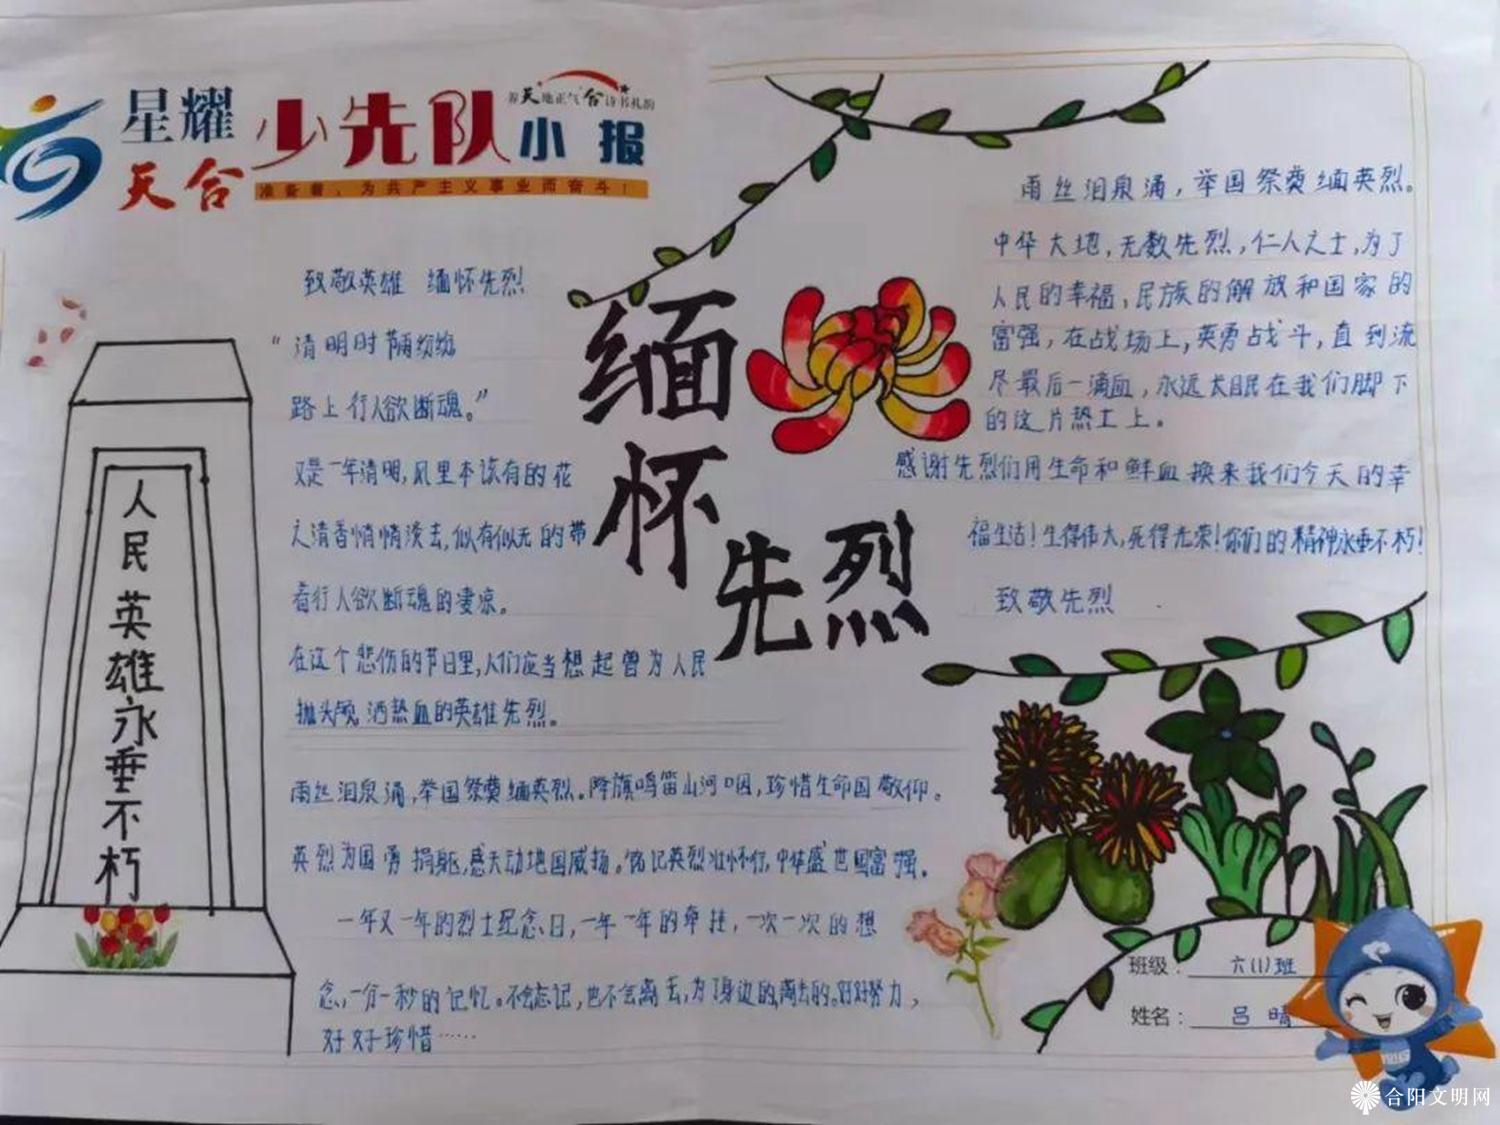 星耀
天合
少先队
小报
养天地正气 合诗书礼韵
准备着，为共产主义事业而奋斗！
致敬英雄 缅怀先烈
“清明时节雨纷纷
路上行人欲断魂。”
又是一年清明，风里本该有的花
之清香悄悄淡去，似有似无的带
着行人欲断魂的凄凉。
在这个悲伤的节日里，人们应当想起曾为人民
抛头颅，洒热血的英雄先烈。
雨丝泪泉涌，举国祭奠缅英烈。降旗鸣笛山河咽，珍惜生命国敬仰。
英烈为国勇捐躯，感天动地国威扬。铭记英烈壮怀行，中华盛世国富强。
一年又一年的烈士纪念日，一年一年的牵挂，一次一次的想
念，一分一秒的记忆。不会忘记，也不会离去，为了身边的，离去的。好好努力，
好好珍惜……
人民英雄永垂不朽
缅怀先烈
雨丝泪泉涌，举国祭奠缅英烈。
中华大地，无数先烈，仁人之士，为了
人民的幸福，民族的解放和国家的
富强，在战场上，英勇战斗，直到流
尽最后一滴血，永远太眠在我们脚下
的这片热土上。
感谢先烈们用生命和鲜血换来我们今天的幸
福生活！生得伟大，死得光荣！你们的精神永垂不朽！
致敬先烈
班级：六(1)班
姓名：吕晴
合阳文明网